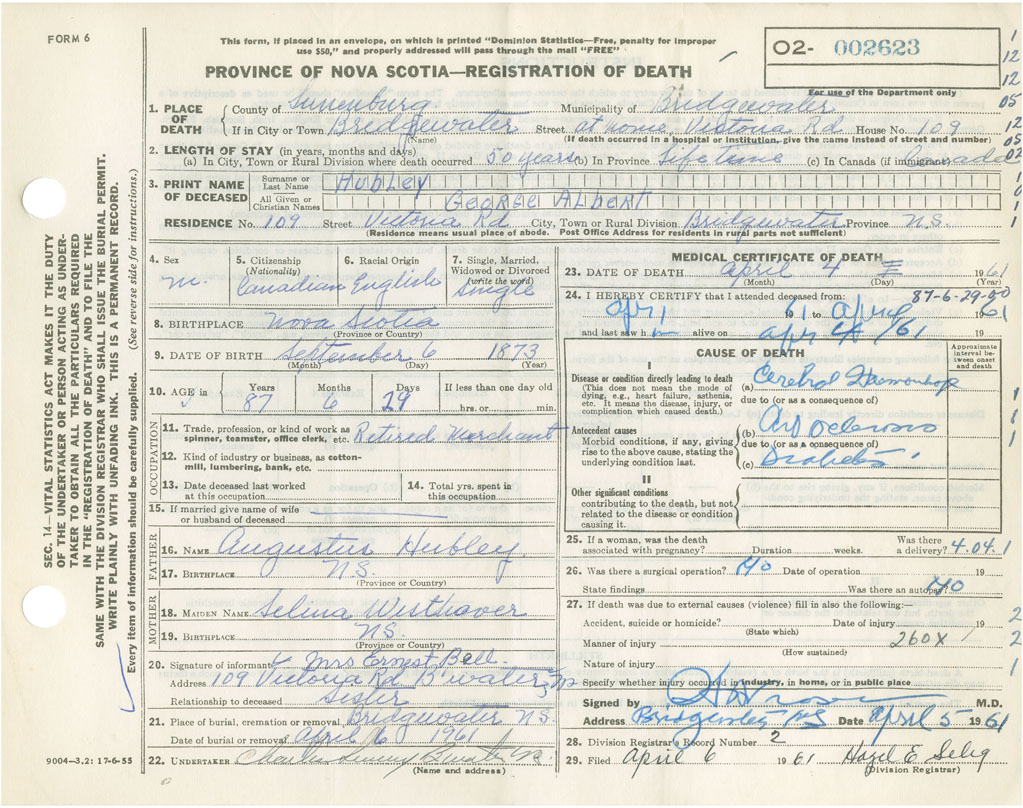 FORM 6
This form, if placed in an envelope, on which is printed "Dominion Statistics—Free, penalty for improper
use $50," and properly addressed will pass through the mail "FREE"
02- 002623
For use of the Department only
PROVINCE OF NOVA SCOTIA—REGISTRATION OF DEATH
1. PLACE OF DEATH
County of Lunenburg Municipality of Bridgewater
If in City or Town Bridgewater Street at home, Victoria Rd House No. 109
(Name) (If death occurred in a hospital or institution, give the name instead of street and number)
2. LENGTH OF STAY (in years, months and days)
(a) In City, Town or Rural Division where death occurred 50 years (b) In Province Life time (c) In Canada (if immigrant) Canada
3. PRINT NAME OF DECEASED
Surname or Last Name Hubley
All Given or Christian Names George Albert
RESIDENCE No. 109 Street Victoria Rd City, Town or Rural Division Bridgewater Province N.S.
(Residence means usual place of abode. Post Office Address for residents in rural parts not sufficient)
4. Sex m.
5. Citizenship (Nationality) Canadian
6. Racial Origin English
7. Single, Married, Widowed or Divorced (write the word) Single
8. BIRTHPLACE Nova Scotia
(Province or Country)
9. DATE OF BIRTH September 6 1873
(Month) (Day) (Year)
10. AGE in Years 87 Months 6 Days 29 If less than one day old
hrs. or min.
OCCUPATION
11. Trade, profession, or kind of work as
spinner, teamster, office clerk, etc. Retired Merchant
12. Kind of industry or business, as cotton-
mill, lumbering, bank, etc.
13. Date deceased last worked
at this occupation
14. Total yrs. spent in
this occupation
15. If married give name of wife
or husband of deceased
FATHER
16. NAME Augustus Hubley
17. BIRTHPLACE N.S.
(Province or Country)
MOTHER
18. MAIDEN NAME Selina Westhaver
19. BIRTHPLACE N.S.
(Province or Country)
20. Signature of informant Mrs Ernest Bell
Address 109 Victoria Rd B'water N.S.
Relationship to deceased Sister
21. Place of burial, cremation or removal Bridgewater N.S.
Date of burial or removal April 6 1961
22. UNDERTAKER
(Name and address)
9004—3.2: 17-6-55
MEDICAL CERTIFICATE OF DEATH
23. DATE OF DEATH April 4 1961
(Month) (Day) (Year)
87-6-29-00
24. I HEREBY CERTIFY that I attended deceased from:
Apr 1 61 to April 1961
and last saw h alive on 19
CAUSE OF DEATH
Approximate interval between onset and death
I
Disease or condition directly leading to death
(This does not mean the mode of
dying, e.g., heart failure, asthenia,
etc. It means the disease, injury, or
complication which caused death.)
(a) Cerebral Haemorrhage
due to (or as a consequence of)
Antecedent causes
Morbid conditions, if any, giving
rise to the above cause, stating the
underlying condition last.
(b)
due to (or as a consequence of)
(c) Diabetes
II
Other significant conditions
contributing to the death, but not
related to the disease or condition
causing it.
25. If a woman, was the death
associated with pregnancy? Duration weeks. Was there
a delivery? 4.04.1
26. Was there a surgical operation? No Date of operation 19
State findings Was there an autopsy? No
27. If death was due to external causes (violence) fill in also the following:—
Accident, suicide or homicide? Date of injury 19
(State which)
Manner of injury 260X
(How sustained)
Nature of injury
Specify whether injury occurred in industry, in home, or in public place
Signed by M.D.
Address Bridgewater NS Date April 5 1961
28. Division Registrar's Record Number 2
29. Filed April 6 1961 Hazel E. Selig
(Division Registrar)
SEC. 14—VITAL STATISTICS ACT MAKES IT THE DUTY
OF THE UNDERTAKER OR PERSON ACTING AS UNDER-
TAKER TO OBTAIN ALL THE PARTICULARS REQUIRED
IN THE "REGISTRATION OF DEATH" AND TO FILE THE
SAME WITH THE DIVISION REGISTRAR WHO SHALL ISSUE THE BURIAL PERMIT.
WRITE PLAINLY WITH UNFADING INK. THIS IS A PERMANENT RECORD.
Every item of information should be carefully supplied. (See reverse side for instructions.)
1
12
12
05
12
05
02
1
0
1
1
1
1
1
2
2
1